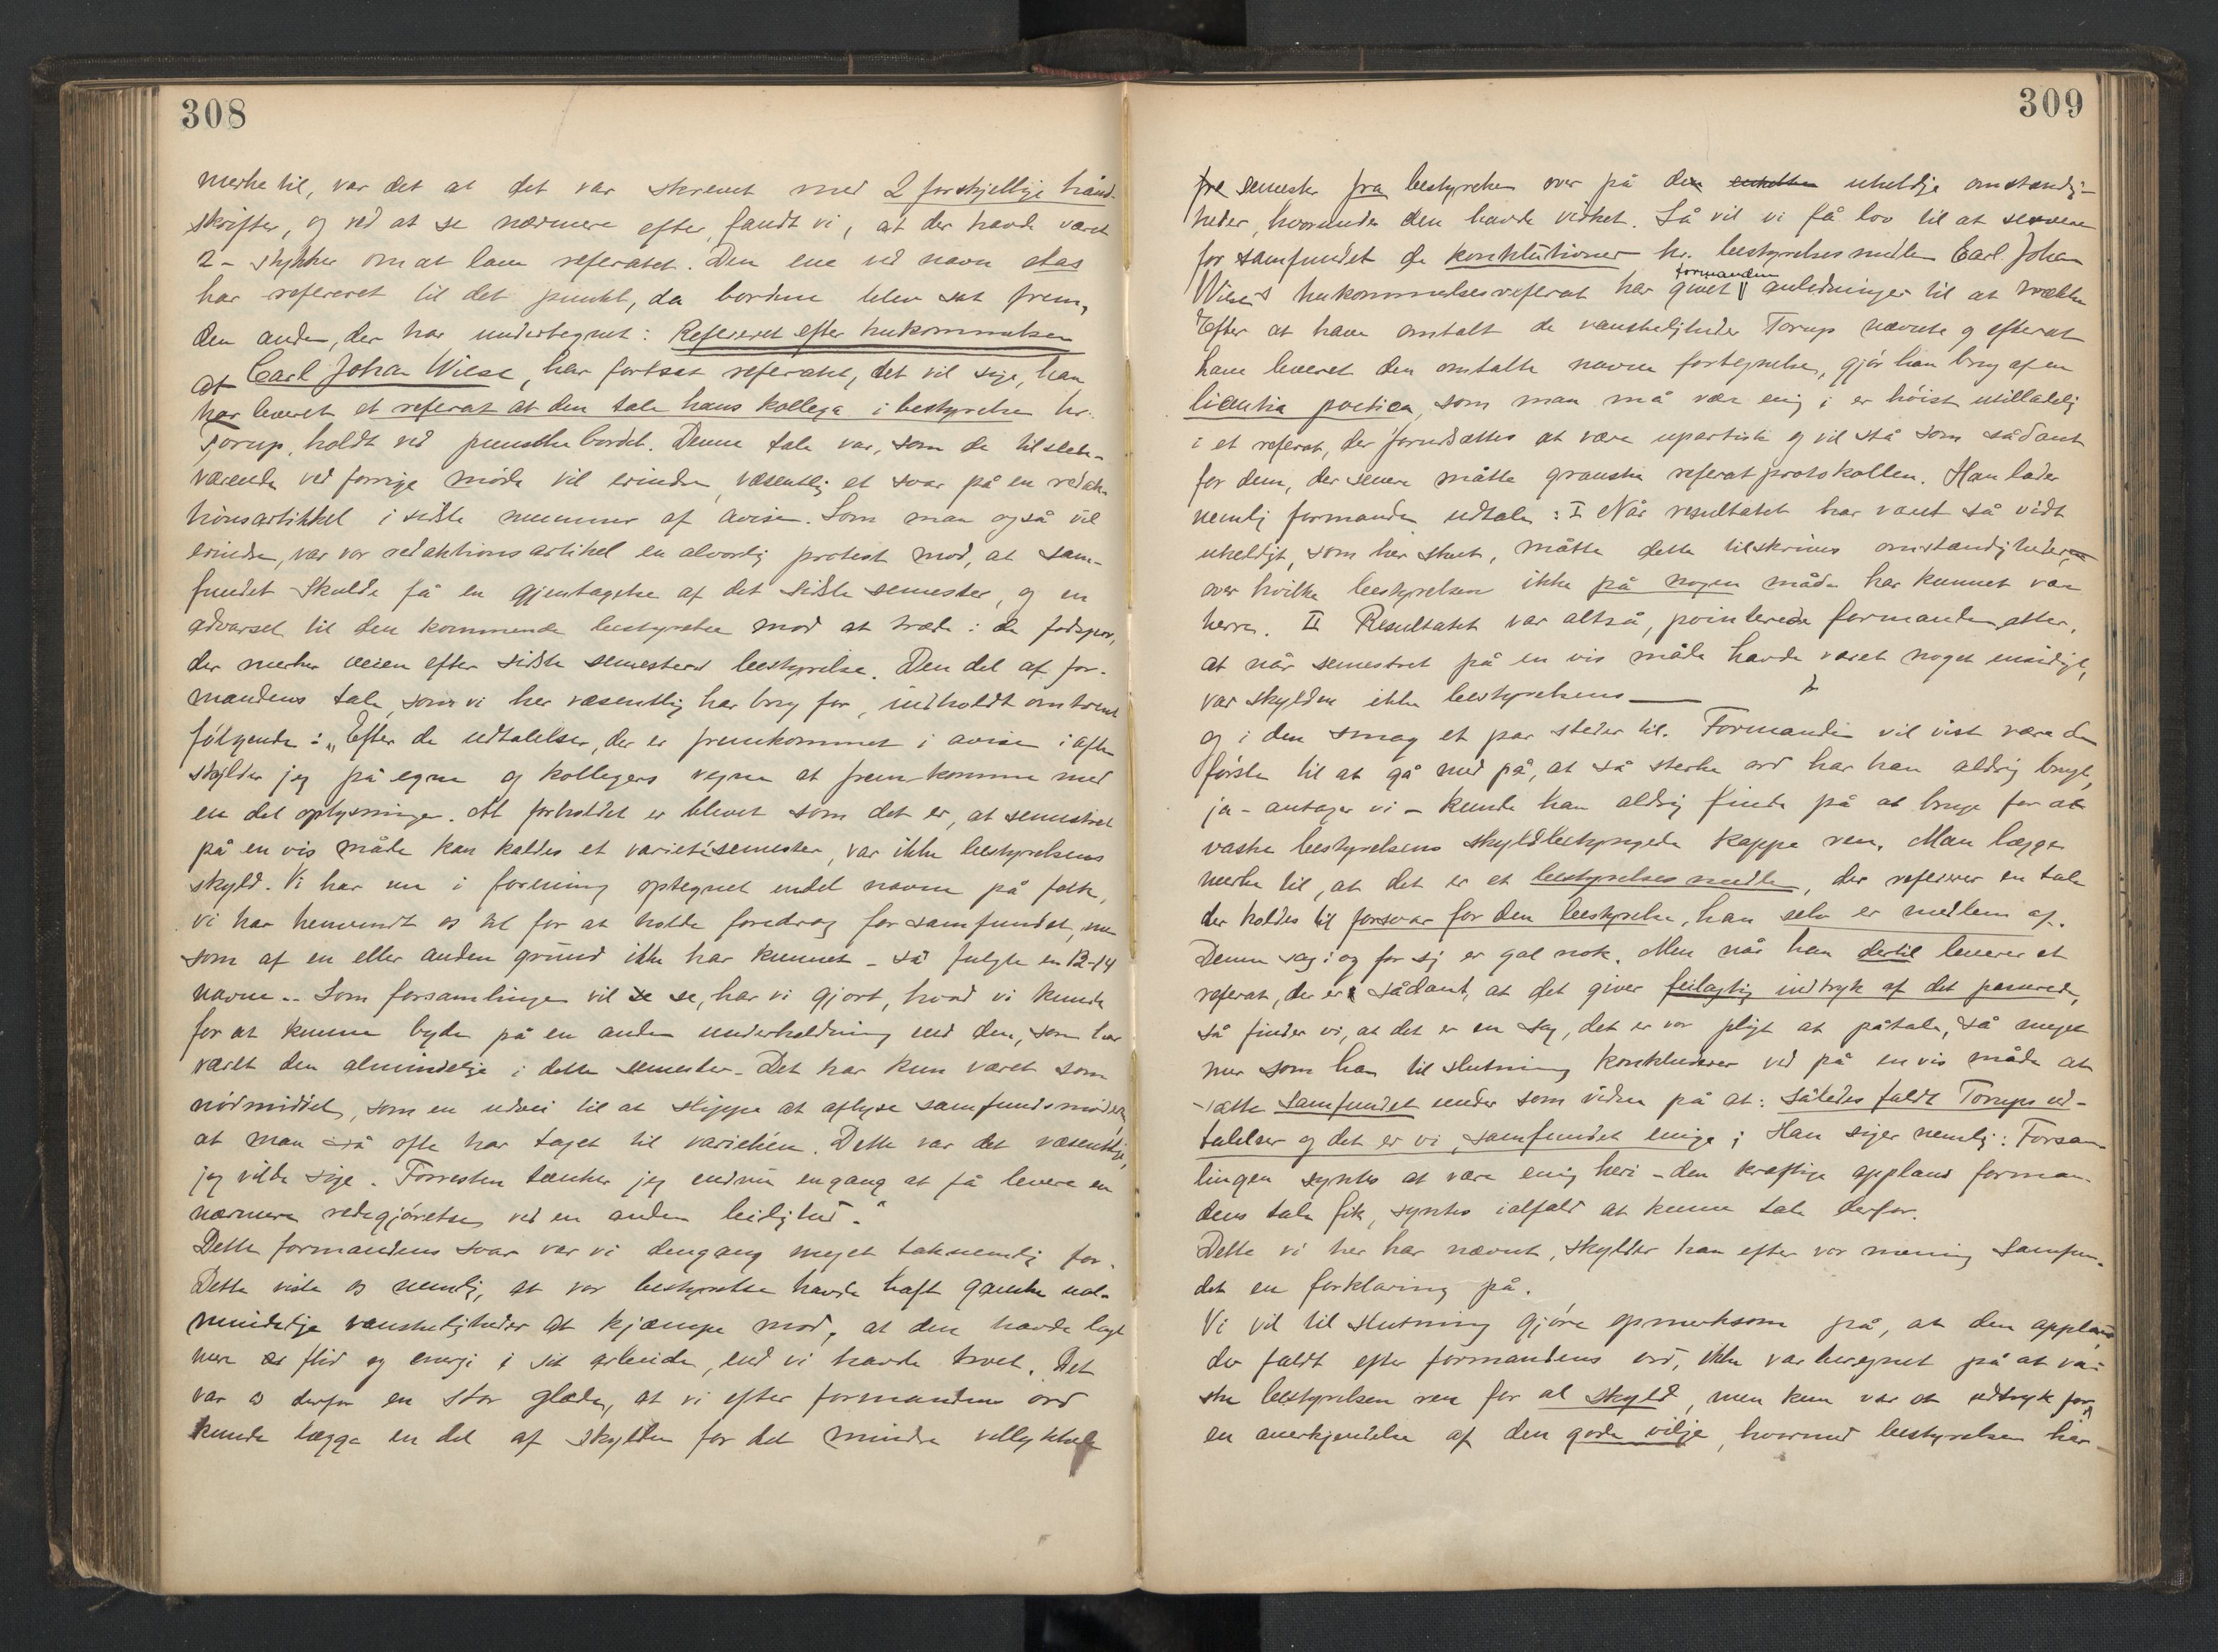 308
merke til, var det at det var skrevet med 2 forskjellige hånd-
skrifter, og ved at se nærmere efter, fandt vi, at der havde været
2 - stykker om at lave referatet. Den ene ved navn
har refereret til det punkt, da bordene blev sat frem,
den anden, der har undertegnet: Refereret efter hukommelsen
af Carl Johan Wiese, har fortsat referatet, det vil sige, han
har leveret et referat at den tale hans kollega i bestyrelsen hr.
Torup, holdt ved punschebordet. Denne tale var, som de tilstede-
værende ved forrige møde vil erindre, væsentlig et svar på en redak-
tionsartikkel i sidste nummer af avisen. Som man også vil
erindre, var vor redaktionsartikel en alvorlig protest mod, at sam-
fundet skulde få en gjentagelse af det sidste semester, og en
advarsel til den kommende bestyrelse mod at træde i de fodspor,
der merker veien efter sidste semesters bestyrelse. Den del af for-
mandens tale, som vi her væsentlig har brug for, indholdt omtrent
følgende: „Efter de udtalelser, der er fremkommet i avisen i aften
skylder jeg på egne og kollegers vegne at frem-komme med
en del oplysninger. At forholdet er blevet som det er, at semestret
på en vis måde kan kaldes et varietésemester, var ikke bestyrelsens
skyld. Vi har nu i forening optegnet endel navne på folk,
vi har henvendt os til for at holde foredrag for samfundet, men
som af en eller anden grund ikke har kunnet - så fulgte en 12-14
navne -. Som forsamlingen vil se se, har vi gjort, hvad vi kunde
for at kunne byde på en anden underholdning end den, som har
været den almindelige i dette semester. Det har kun været som
nødmiddel, som en udvei til at slippe at aflyse samfundsmøder,
at man så ofte har taget til varietéen. Dette var det væsentlige,
jeg vilde sige. Forresten tænker jeg endnu engang at få levere en
nærmere redegjørelse ved en anden leilighed.“
Dette formandens svar var vi dengang meget taknemlig for.
Dette viste os nemlig, at vor bestyrelse havde haft ganske ual-
mindelige vanskeligheder at kjæmpe mod, at den havde lagt
mere flid og energi i sit arbeide, end vi havde troet. Det
var os derfor en stor glæde, at vi efter formandens ord
kunde lægge en del af skylden for det mindre vellykkede
309
fre semester fra bestyrelsen over på de uheldige omstændig-
heder, hvorunder den havde virket. Så vil vi få lov til at servere
for samfundet de konklutioner hr. bestyrelsesmedlem Carl Johan
Wiese's hukommelsesreferat har givet formanden anledninger til at trække
Efter at have omtalt de vanskeligheder Torup nævnte og efterat
have leveret den omtalte navne fortegnelse, gjør han brug af en
licentia poetica, som man må være enig i er høist utilladelig
i et referat, der forudsættes at være upartisk og vil stå som sådant
for dem, der senere måtte granske referatprotokollen. Han lader
nemlig formanden udtale: I Når resultatet har været så vidt
uheldigt, som her skeet, måtte dette tilskrives omstændigheder,
over hvilke bestyrelsen ikke på nogen måde har kunnet være
herre. II Resultatet var altså, pointerede formanden atter,
at når semestret på en vis måde havde været noget ensidigt,
var skylden ikke bestyrelsens —
og i den smag et par steder til. Formanden vil vist være den
første til at gå med på, at så sterke ord har han aldrig brugt,
ja - antager vi - kunde han aldrig finde på at bruge for at
vaske bestyrelsens skyldbetyngede kappe ren. Man lægge
merke til, at det er et bestyrelsesmedlem, der refererer en tale
der holdes til forsvar for den bestyrelse, han selv er medlem af.
Denne sag i og for sig er gal nok. Men når han dertil leverer et
referat, der er sådant, at det giver feilagtig indtryk af det passerede,
så finder vi, at det er en sag, det er vor pligt at påtale, så meget
mer som han til slutning konkluderer ved på en vis måde at
sætte samfundet under som vidne på at: således faldt Torups ud-
talelser og det er vi, samfundet enige i. Han siger nemlig: Forsam-
lingen syntes at være enig heri - den kraftige applaus forman-
dens tale fik, syntes ialfald at kunne tale derfor.
Dette vi her har nævnt, skylder han efter vor mening samfun-
det en forklaring på.
Vi vil til slutning gjøre opmerksom på, at den applaus
der faldt efter formandens ord, ikke var beregnet på at va-
ske bestyrelsen ren for al skyld, men kun var et udtryk for
en anerkjendelse af den gode vilje, hvormed bestyrelsen har